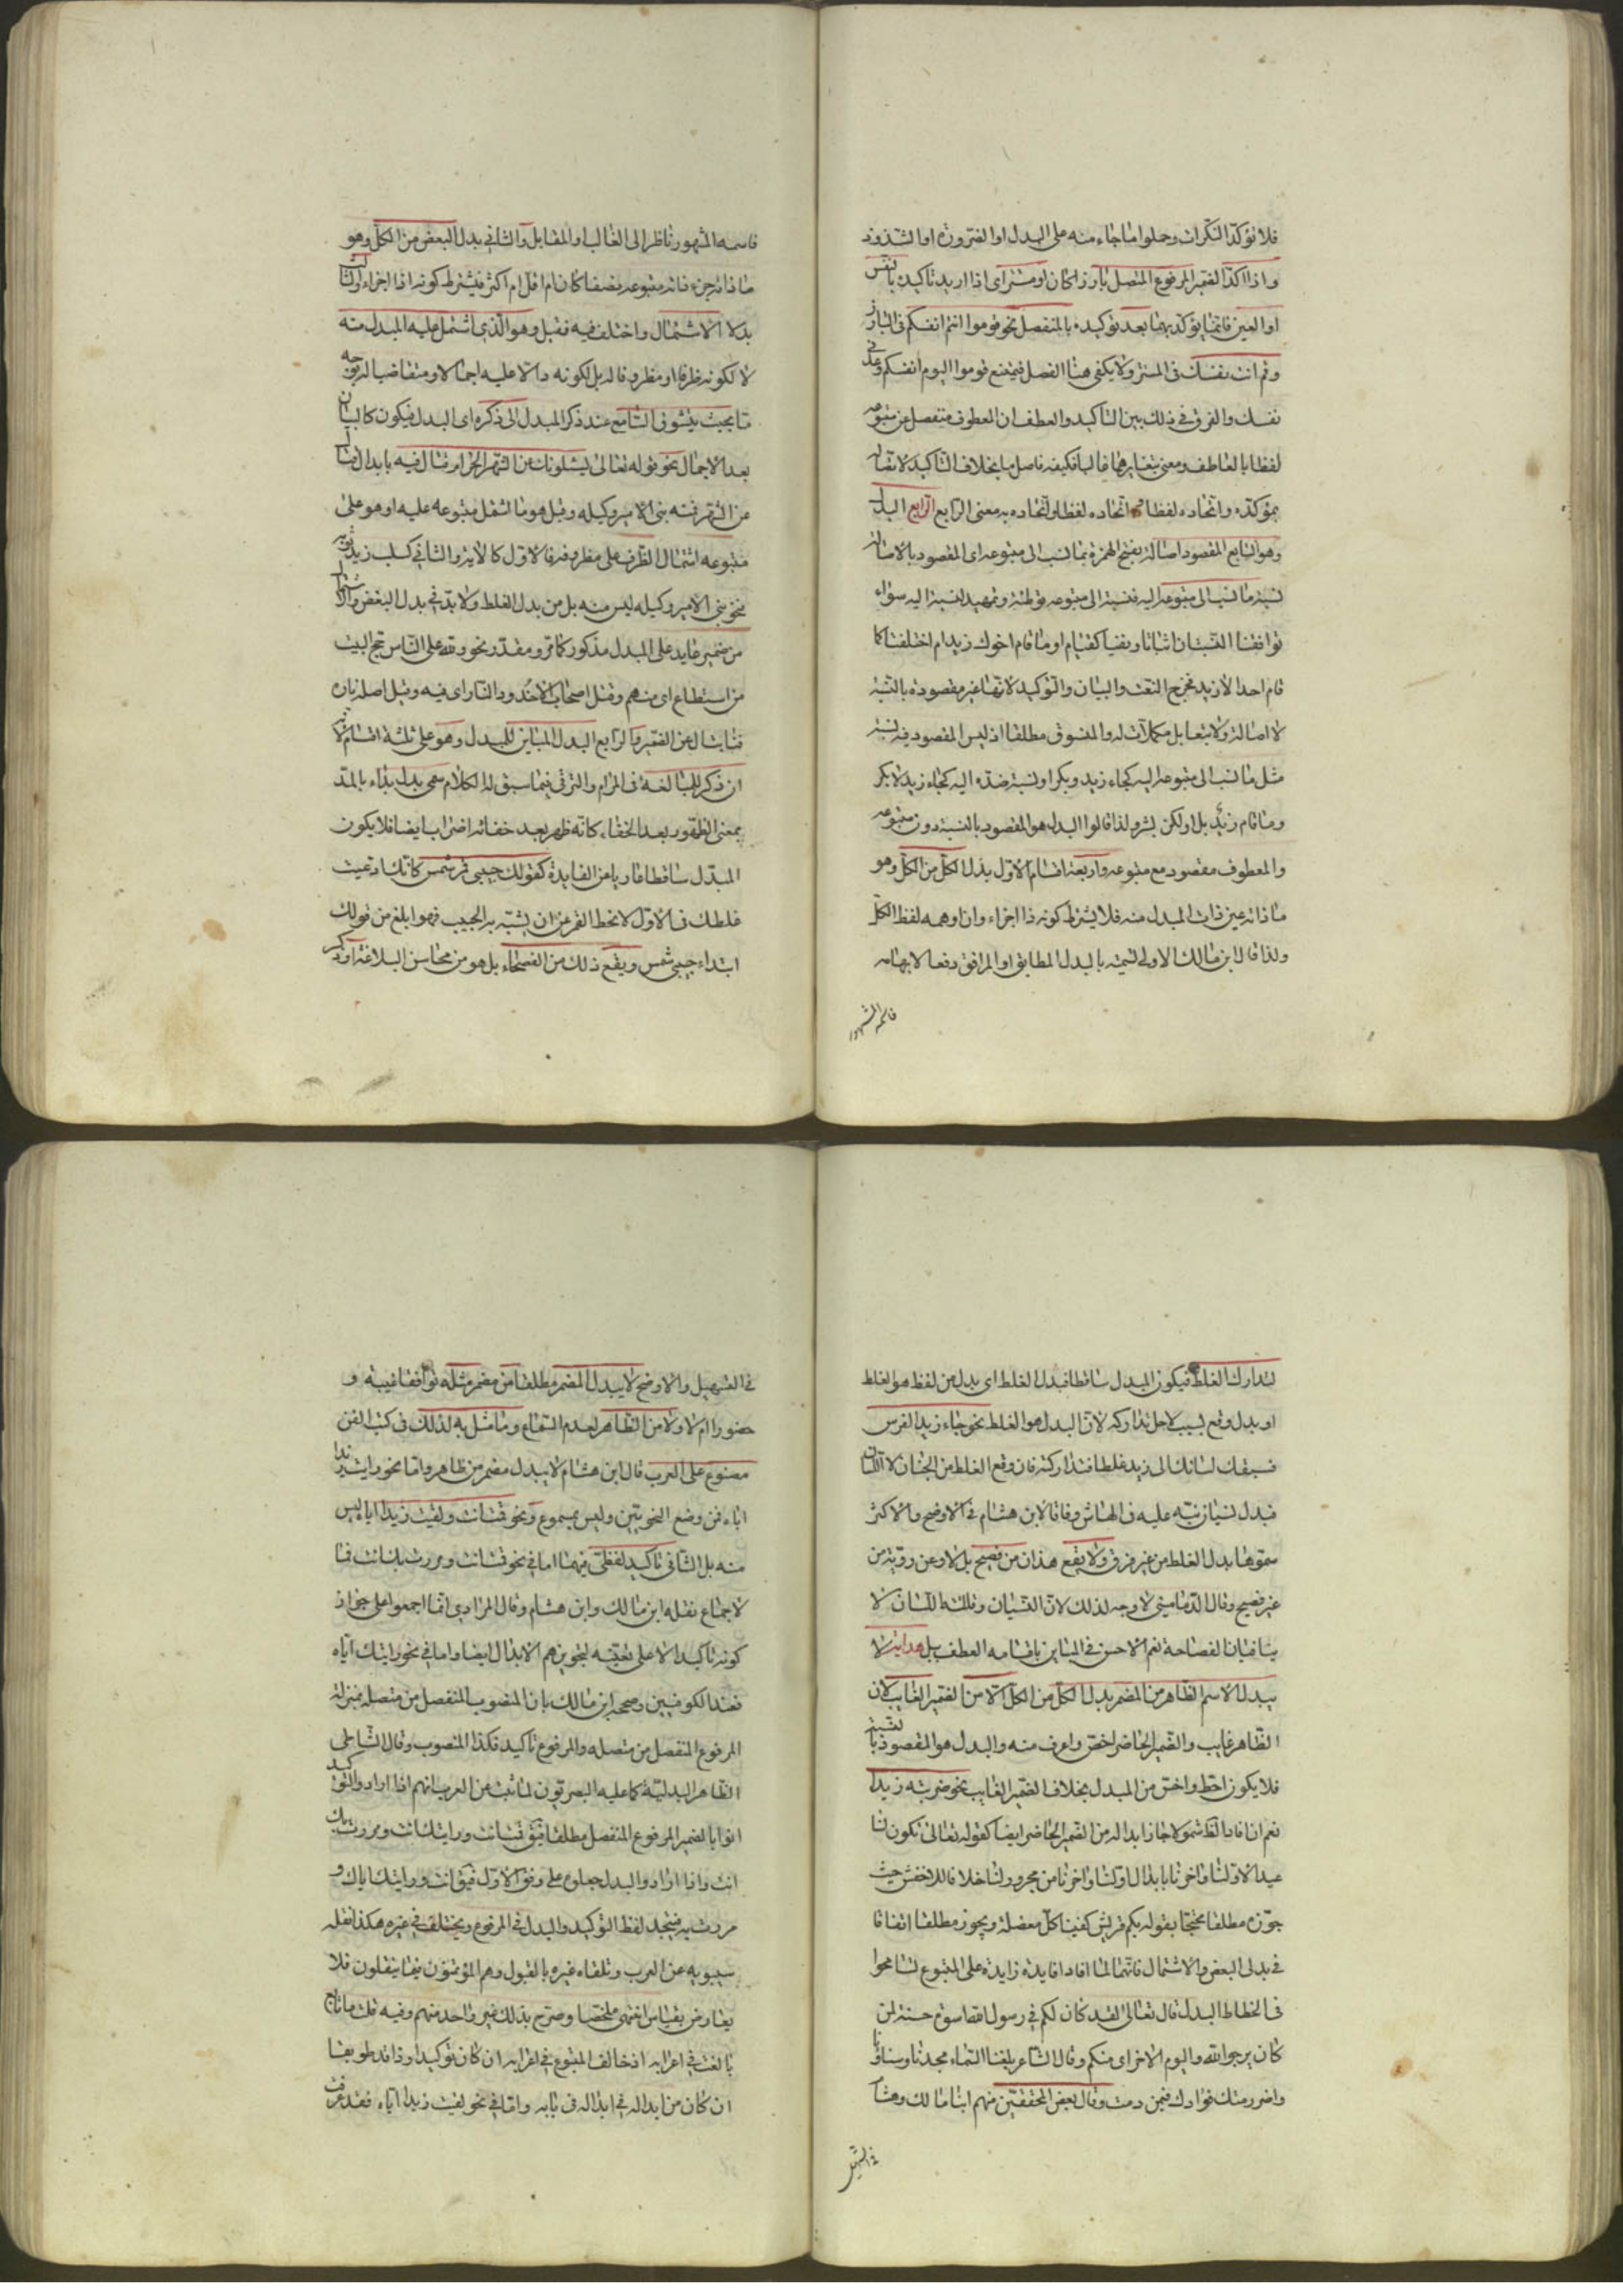 فلا تؤكد النكرات وحملوا ما جاء منه على البدل او الضرورة او الشذوذ
واذا اكد الضمير المرفوع المتصل بارزا كان او مستترا اى اذا اريد تاكيده بالنفس
او العين فانما يؤكد بهما بعد توكيده بالمنفصل نحو قوموا انتم انفسكم فى البارز
وقم انت نفسك فى المستتر ولا يكفى هنا الفصل فيمتنع قوموا اليوم انفسكم وغدا
نفسك والفرق فى ذلك بين التاكيد والعطف ان المعطوف منفصل عن متبوعه
لفظا بالعاطف ومعنى بتغايرهما غالبا فكيفيه فاصل ما بخلاف التاكيد لاتصاله
بمؤكده واتحاده لفظا اتحاده لفظا او اتحاده به معنى الرابع الرابع البدل
وهو التابع المقصود اصالة بفتح الهمزة بما نسب الى متبوعه اى المقصود بالاصالة
نسبة ما نسب الى متبوعه اليه فنسبة الى متبوعه توطئة وتمهيد لنسبة اليه سواء
توافقنا النسبتان اثباتا ونفيا كقيام او ما قام اخوك زيد ام اختلفتا كما
قام احد الا زيد فخرج النعت والبيان والتوكيد لانها غير مقصودة بالنسبة
لا اصالة ولا تبعا بل مكملات له والمنسوق مطلقا اذ ليس المقصود فيه نسبة
مثل ما نسب الى متبوعه اليه كجاء زيد وبكر او نسبة ضده اليه كجاء زيد لا بكر
وما قام زيد بل او لكن بشر ولذا قالوا البدل هو المقصود بالنسبة دون متبوعه
والمعطوف مقصود مع متبوعه واربعة اقسام الاول بدل الكل من الكل وهو
ما ذاته عين ذات المبدل منه فلا يشترط كونه ذا اجزاء وان اوهمه لفظ الكل
ولذا قال ابن مالك الاولى تسميته بالبدل المطابق او الموافق دفعا لابهامه
فاسمه المشهور
فاسمه المشهور ناظر الى الغالب او المقابل والثانى بدل البعض من الكل وهو
ما ذاته جزء ذات متبوعه نصفا كان ام اقل ام اكثر فيشترط كونه ذا اجزاء والثالث
بدل الاشتمال واختلف فيه فقيل وهو الذى اشتمل عليه المبدل منه
لا لكونه ظرفا او مظروفا له بل لكونه دالا عليه اجمالا ومتقاضيا له بوجه
ما بحيث يتشوق السامع عند ذكر المبدل الى ذكره اى البدل فيكون كالبيان
بعد الاجمال نحو قوله تعالى يسئلونك عن الشهر الحرام قتال فيه بابدال قتال
عن الشهر فمنه بنى الامير وكيله وقيل هو ما اشتمل متبوعه عليه او هو على
متبوعه اشتمال الظرف على مظروفه فالاول كالاية والثانى كسلب زيد ثوبه
نحو بنى الامير وكيله ليس منه بل من بدل الغلط ولا بد فى بدل البعض والاشتمال
من ضمير عايد على المبدل مذكور كما مر ومقدر نحو ولله على الناس حج البيت
من استطاع اى منهم وقتل اصحاب الاخدود النار اى فيه وقيل اصله ناره
فناب ال عن الضمير والرابع البدل المباين للمبدل وهو على ثلثة اقسام لانه
ان ذكر للمبالغة فى المرام والترقى فيما سبق له الكلام سمى بدل بداء بالمد
بمعنى الظهور بعد الخفاء كانه ظهر بعد خفائه اضراب ايضا فلا يكون
المبدل ساقطا عاريا عن الفايدة كقولك حبيبى قمر شمس كانك ادعيت
غلطك فى الاول لانحطاط الغرض ان يشبه به الحبيب فهو ابلغ من قولك
ابتداء حبيبى شمس ويقع ذلك من الفصحاء بل هو من محاسن البلاغة او ذكر
لتدارك الغلط فيكون المبدل ساقطا فبدل الغلط اى بدل من لفظ هو الغلط
او بدل وقع بسبب لاجل تداركه لا ان البدل هو الغلط نحو جاء زيد الفرس
فسبقك لسانك الى زيد غلطا فتداركته فان وقع الغلط من الجنان لا اللسان
فبدل نسيان نبه عليه فى الهامش وفاقا لابن هشام فى الاوضح والاكثر
سموهما بدل الغلط من غير فرق ولا يقع هذان من فصيح بل ولا عن روية من
غير فصيح وقال الدمامينى لا وجه لذلك لان النسيان وفلتة اللسان لا
ينافيان الفصاحة نعم الاحسن فى المباين باقسامه العطف ببل هداية لا
يبدل الاسم الظاهر من المضمر بدل الكل من الكل الا من الضمير الغايب لان
الظاهر غايب والضمير الحاضر اخص واعرف منه والبدل هو المقصود بالنسبة
فلا يكون احط واخس من المبدل بخلاف الضمير الغايب نحو ضربته زيدا
نعم ان افاد الظ شمولا جاز ابداله من الضمير الحاضر ايضا كقوله تعالى تكون لنا
عيدا لاولنا واخرنا بابدال اولنا واخرنا من مجرور لنا خلافا للاخفش حيث
جوزه مطلقا محتجا بقوله بكم قريش كفينا كل معضلة ويجوز مطلقا اتفاقا
فى بدلى البعض والاشتمال فانهما لما افادا فايدة زايدة على المتبوع تسامحوا
فى انحطاط البدل قال تعالى لقد كان لكم فى رسول الله اسوة حسنة لمن
كان يرجو الله واليوم الاخر اى منكم وقال الشاعر بلغنا السماء مجدنا وسناؤنا
واضر رمتك فؤادك فيمن دمت وقال بعض المحققين منهم ابنا مالك وهشام
فى التسهيل
فى التسهيل والاوضح لا يبدل المضمر مطلقا من مضمر مثله توافقا غيبة و
حضورا ام لا ولا من الظاهر لعدم السماع وما مثل به لذلك فى كتب الفن
مصنوع على العرب قال ابن هشام لا يبدل مضمر من ظاهر واما نحو رايت زيدا
اياه فمن وضع النحويين وليس بمسموع ونحو قمت انت ولقيت زيدا اياه ليس
منه بل الثانى تاكيد لفظى فيهما اما فى نحو قمت انت ومررت بك انت فبا
لاجماع نقله ابن مالك وابن هشام وقال المرادى انما اجمعوا على جواز
كونه تاكيدا لا على تعينه لتجويزهم الابدال ايضا واما فى نحو رايتك اياه
فعند الكوفيين وصححه ابن مالك بان المنصوب المنفصل من متصله بمنزلة
المرفوع المنفصل من متصله والمرفوع تاكيد فكذا المنصوب وقال الشاطبى
الظاهر البدلية كما عليه البصريون لما ثبت عن العرب انهم اذا ارادوا التوكيد
اتوا بالضمير المرفوع المنفصل مطلقا فيق قمت انت ورايتك انت ومررت بك
انت واذا ارادوا البدل جعلوه على وفق الاول فيق قمت انت ورايتك اياك و
مررت به فيتحد لفظ التوكيد والبدل فى المرفوع ويختلف فى غيره هكذا نقله
سيبويه عن العرب وتلقاه غيره بالقبول وهم المؤتمنون فيما ينقلون فلا
يعارض بقياس انتهى ملخصا وصرح بذلك غير واحد منهم وفيه
بالغت فى اعرابه اذ خالف المتبوع فى اعرابه ان كان توكيدا وذا
ان كان من ابداله فى ابداله فى بابه واما فى نحو لقيت زيدا اياه فقد عرفت